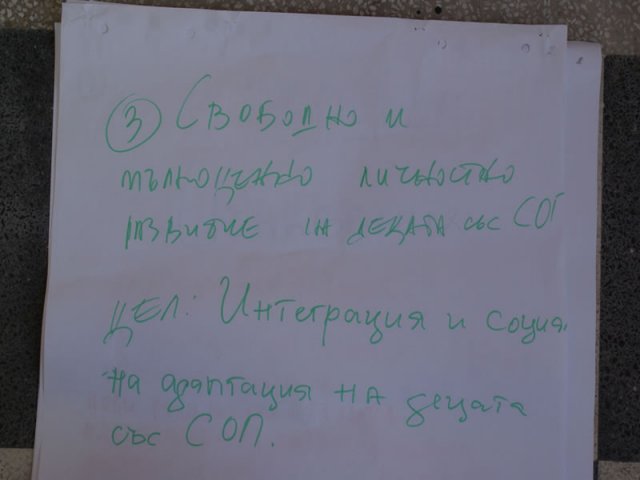 ③ Свободно и
пълноценно личностно
развитие на децата със СОП
Цел: Интеграция и социал
на адаптация на децата
със СОП.